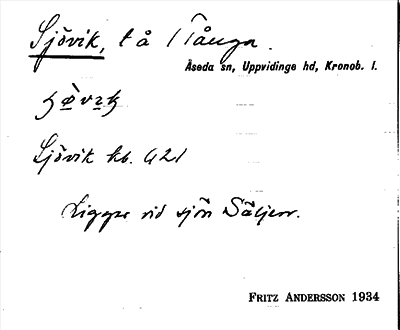 Sjövik, t å Tånga.
Åseda sn, Uppvidinge hd, Kronob. l.
Sjövik kb. 421
Ligger vid sjön Säljen.
FRITZ ANDERSSON 1934